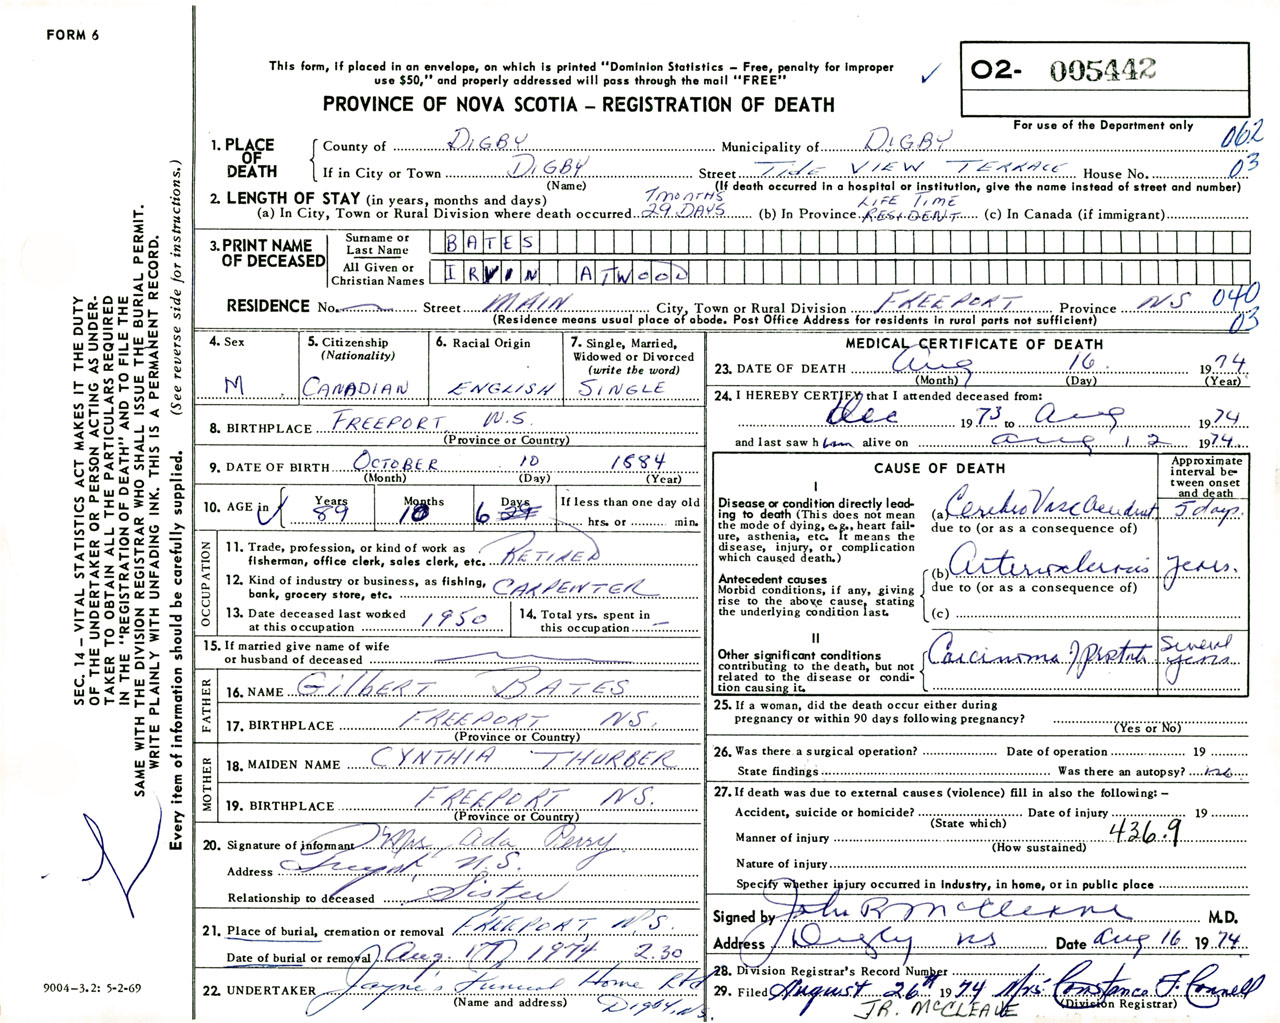 FORM 6
This form, if placed in an envelope, on which is printed "Dominion Statistics – Free, penalty for improper
use $50," and properly addressed will pass through the mail "FREE"
✓
O2- 005442
PROVINCE OF NOVA SCOTIA – REGISTRATION OF DEATH
For use of the Department only
062
03
1. PLACE OF DEATH
County of DIGBY Municipality of DIGBY
If in City or Town DIGBY Street TIDE VIEW TERRACE House No.
(Name) (If death occurred in a hospital or institution, give the name instead of street and number)
2. LENGTH OF STAY (in years, months and days) 7 MONTHS LIFE TIME
(a) In City, Town or Rural Division where death occurred 29 DAYS (b) In Province RESIDENT (c) In Canada (if immigrant)
3. PRINT NAME OF DECEASED
Surname or Last Name BATES
All Given or Christian Names IRVIN ATWOOD
RESIDENCE No. Street MAIN City, Town or Rural Division FREEPORT Province NS 040
(Residence means usual place of abode. Post Office Address for residents in rural parts not sufficient) 03
4. Sex M
5. Citizenship (Nationality) CANADIAN
6. Racial Origin ENGLISH
7. Single, Married, Widowed or Divorced (write the word) SINGLE
8. BIRTHPLACE FREEPORT N.S.
(Province or Country)
9. DATE OF BIRTH OCTOBER 10 1884
(Month) (Day) (Year)
10. AGE in ✓ Years 89 Months 10 Days 6 If less than one day old hrs. or min.
OCCUPATION
11. Trade, profession, or kind of work as
fisherman, office clerk, sales clerk, etc. RETIRED
12. Kind of industry or business, as fishing,
bank, grocery store, etc. CARPENTER
13. Date deceased last worked
at this occupation 1950
14. Total yrs. spent in
this occupation –
15. If married give name of wife
or husband of deceased
FATHER
16. NAME GILBERT BATES
17. BIRTHPLACE FREEPORT NS.
(Province or Country)
MOTHER
18. MAIDEN NAME CYNTHIA THURBER
19. BIRTHPLACE FREEPORT NS.
(Province or Country)
20. Signature of informant Mrs Ada Perry
Address Freeport, N.S.
Relationship to deceased Sister
21. Place of burial, cremation or removal FREEPORT, N.S.
Date of burial or removal Aug. 17 1974 2.30
22. UNDERTAKER Jayne's Funeral Home Ltd
(Name and address) Digby, N.S.
MEDICAL CERTIFICATE OF DEATH
23. DATE OF DEATH Aug 16 1974
(Month) (Day) (Year)
24. I HEREBY CERTIFY that I attended deceased from:
Dec 1973 to Aug 1974
and last saw him alive on Aug 12 1974
CAUSE OF DEATH
Approximate interval between onset and death
I
Disease or condition directly lead-
ing to death (This does not mean
the mode of dying, e.g., heart fail-
ure, asthenia, etc. It means the
disease, injury, or complication
which caused death.)
(a) Cerebro Vasc accident 5 days.
due to (or as a consequence of)
Antecedent causes
Morbid conditions, if any, giving
rise to the above cause, stating
the underlying condition last.
(b) Arteriosclerosis years.
due to (or as a consequence of)
(c)
II
Other significant conditions
contributing to the death, but not
related to the disease or condi-
tion causing it.
Carcinoma of prostate Several years
25. If a woman, did the death occur either during
pregnancy or within 90 days following pregnancy?
(Yes or No)
26. Was there a surgical operation? Date of operation 19
State findings Was there an autopsy? no
27. If death was due to external causes (violence) fill in also the following: –
Accident, suicide or homicide? Date of injury 19
(State which)
Manner of injury 436.9
(How sustained)
Nature of injury
Specify whether injury occurred in industry, in home, or in public place
Signed by John R McCleave M.D.
Address Digby NS Date Aug 16 1974
28. Division Registrar's Record Number
29. Filed August 26th 1974 Mrs Constance F. Connell
(Division Registrar)
JR. MCCLEAVE
SEC. 14 – VITAL STATISTICS ACT MAKES IT THE DUTY
OF THE UNDERTAKER OR PERSON ACTING AS UNDER-
TAKER TO OBTAIN ALL THE PARTICULARS REQUIRED
IN THE "REGISTRATION OF DEATH" AND TO FILE THE
SAME WITH THE DIVISION REGISTRAR WHO SHALL ISSUE THE BURIAL PERMIT.
WRITE PLAINLY WITH UNFADING INK. THIS IS A PERMANENT RECORD.
Every item of information should be carefully supplied. (See reverse side for instructions.)
9004-3.2: 5-2-69